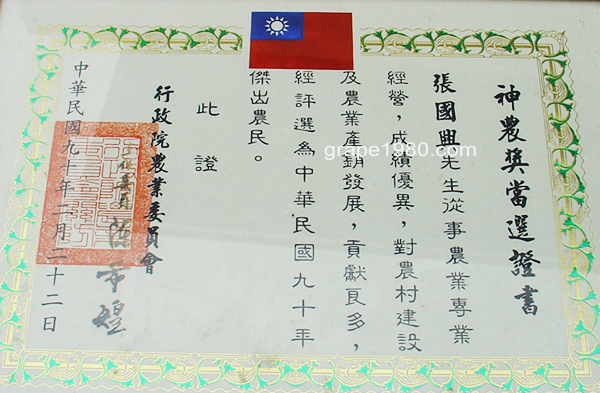 神農獎當選證書
張國興先生從事農業專業
經營，成績優異，對農村建設
及農業產銷發展，貢獻良多，
經評選為中華民國九十年
傑出農民。
此證
行政院農業委員會
主任委員 陳希煌
中華民國九十年二月二十二日
grape1980.com